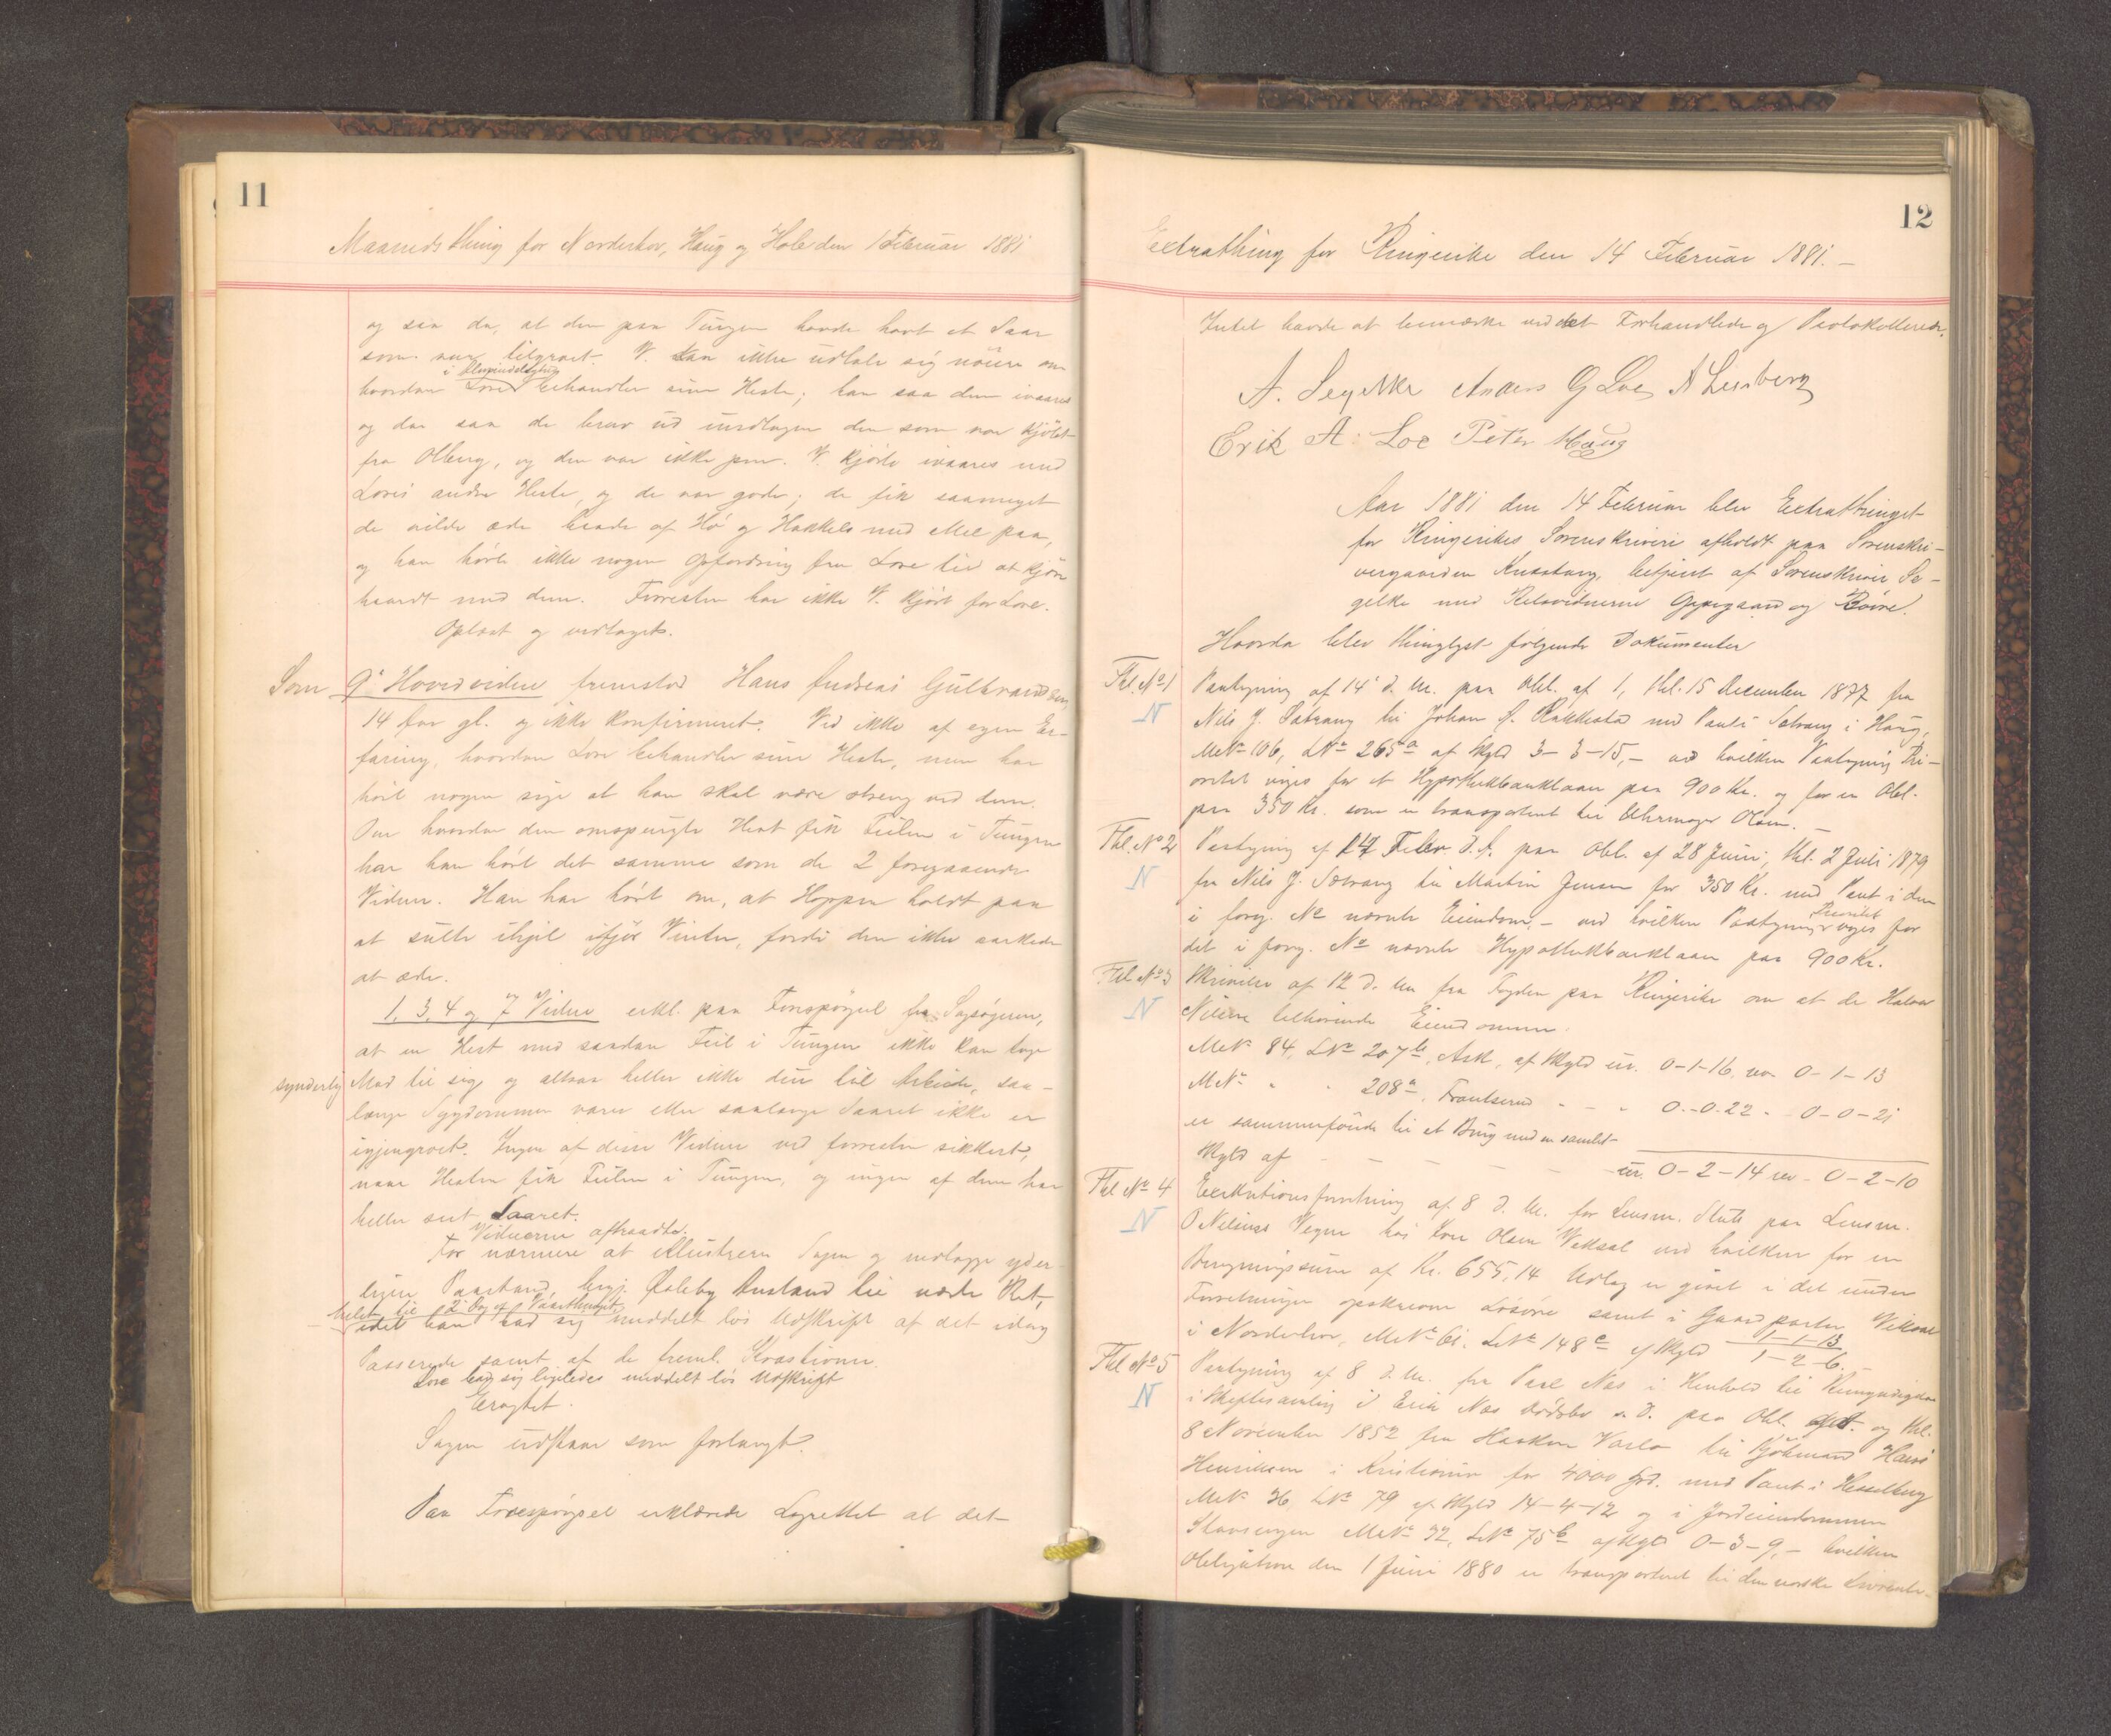 11
Maanedsthing for Norderhov, Haug og Hole den 1 Februar 1881
og saa da, at den paa Tungen havde havt et Saar
som var tilgroet. V. kan ikke udtale sig nøiere om
i Almindelighed
hvordan Lore behandler sine Heste; han saa dem ivaares
og da saa de brav ud undtagen den som var kjøbt
fra Olberg, og den var ikke pen. V. kjørte ivaares med
Lores andre Heste, og de var gode; de fik saameget
de vilde æde baade af Hø og Hakkels med Mel paa,
og han hørte ikke nogen Opfordring fra Lore til at kjøre
haardt med dem. Forresten har ikke V. kjørt for Lore.
Oplæst og vedtaget.
Som 9de Hovedvidne fremstod Hans Andreas Gulbrandsen,
14 Aar gl. og ikke konfirmeret. Ved ikke af egen Er-
faring, hvordan Lore behandler sine Heste, men har
hørt nogen sige at han skal være streng ved dem.
Om hvordan den omspurgte Hest fik Feilen i Tungen
har han hørt det samme som de 2 foregaaende
Vidner. Han har hørt om, at Hoppen holdt paa
at sulte ihjel ifjor Vinter, fordi den ikke
at æde.
1, 3, 4 og 7 Vidne erkl. paa Forespørgsel fra Sagsøgeren,
at en Hest med saadan Feil i Tungen ikke kan tage
synderlig Mad til sig og altsaa heller ikke due til Arbeide, saa-
længe Sygdommen varer eller saalænge Saaret ikke er
igjengroet. Ingen af disse Vidner ved forresten sikkert,
naar Hesten fik Feilen i Tungen, og ingen af dem har
heller seet Saaret.
Vidnerne aftraadte.
For nærmere at illustrere Sagen og nedlægge yder-
ligere Paastand, begj. Anstand til næste Ret,
2 Dag af Vaarthinget
idet han bad sig meddelt løs Udskrift af det idag
Passerede samt af de freml.
Lore bad sig ligeledes meddelt løs Udskrift
Eragtet.
Sagen udstaar som forlangt.
Paa Forespørgsel erklærede Lagrettet at det
12
Extrathing for Ringerike den 14 Februar 1881. –
Intet havde at bemærke ved det Forhandlede og Protokollerede.
A. Segelke Anders G Loe
Erik A. Loe Peter Haug
Aar 1881 den 14 Februar blev Extrathinget
for Ringerikes Sorenskriveri afholdt paa Sorenskri-
vergaarden betjent af Sorenskriver Se-
gelke med Retsvidnerne Oppegaard og
Hvorda blev thinglyst følgende Dokumenter
Thl. No 1 Paategning af 14 d. M. paa Obl. af 1, thl. 15 December 1877 fra
N
Nils J. Sætrang til Johan A. Rakkestad med Pant i Sætrang i Haug,
MNo 106, LNo 265a af Skyld 3–3–15, – ved hvilken Paategning Pri-
oritet viges for et Hypothekbanklaan paa 900 Kr. og for en Obl.
paa 350 Kr. som er transporteret til Uhrmager Olsen. –
Thl. No 2 Paategning af 14 Febr. d. A. paa Obl. af 28 Juni, thl. 2 Juli 1879
N
fra Nils J. Sætrang til Martin Jensen for 350 Kr. med Pant i den
i foreg. No nævnte Eiendom, – ved hvilken Paategning Prioritet viges for
det i foreg. No nævnte Hypothekbanklaan paa 900 Kr.
Thl No 3 Skrivelse af 12 d. M. fra Fogden paa Ringerike om at de Halvor
N
Nilsen tilhørende Eiendomme
MNo 84, LNo 207b, Ask, af Skyld ur. 0–1–16, rev. 0–1–13
MNo " " 208a, Frantserud – – – 0–0–22 – 0–0–21
er sammenføiede til et Brug med en samlet
Skyld af – – – – – – ur. 0–2–14 rev – 0–2–10
Thl No 4 Executionsforretning af 8 d. M. for Lensm. paa Lensm.
N
O Nilsens Vegne hos Iver Olsen Veksal ved hvilken for en
af Kr. 655,14 Udlæg er givet i det under
Forretningen opskrevne Løsøre samt i Gaardparten Veksal
i Norderhov, MNo 61, LNo 148c af Skyld 1–1–13
1–2–6. –
Thl No 5 Paategning af 8 d. M. fra Paal Næs i Henhold til Bemyndigelse
N
i Skiftesamling i Erik Næs Dødsbo s. D. paa Obl. og thl.
8 November 1852 fra Haaken til Kjøbmand Hans
Henriksen i Kristiania for 4000 Spd. med Pant i Hesselberg
MNo 36, LNo 79 af Skyld 14–4–12 og i Jordeiendommen
MNo 32, LNo 75b af Skyld 0–3–9, – hvilken
Obligation den 1 Juni 1880 er transporteret til den norske Livrente-